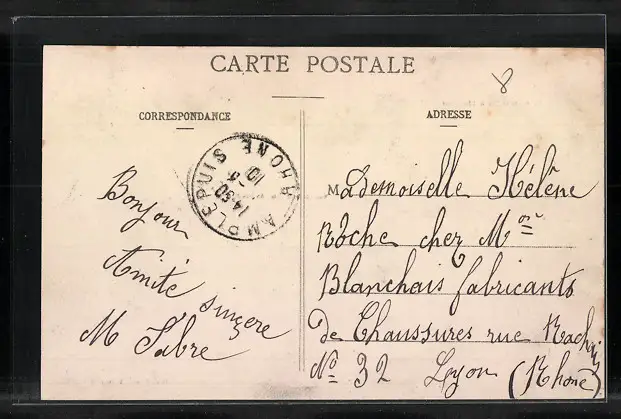 CARTE POSTALE
8
CORRESPONDANCE
ADRESSE
AMPLEPUIS RHONE
14-30
10
Bonjour
Amitié sincere
M Fabre
Mademoiselle Hélène
Roche chez Mon
Blanchais fabricants
de Chaussures rue
No 32 Lyon (Rhone)